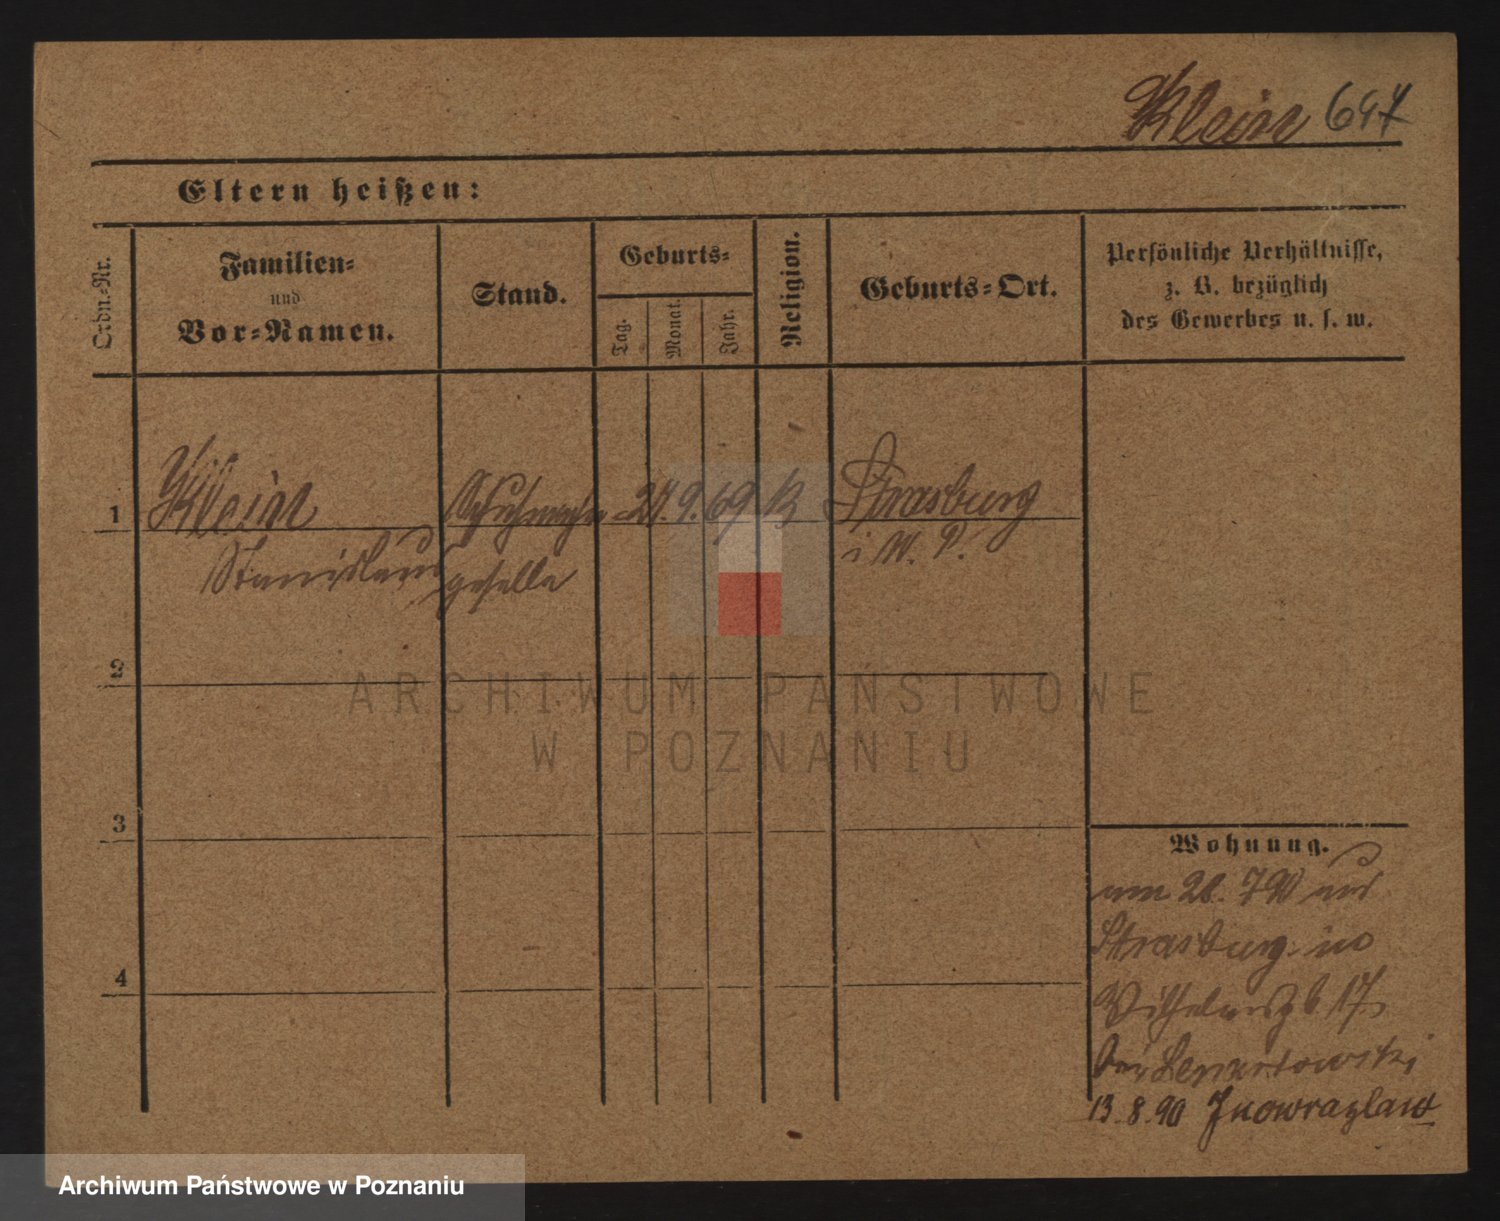 Klein 697
Eltern heißen:
Ordn.-Nr.
Familien-
und
Vor-Namen.
Stand.
Geburts-
Tag.
Monat.
Jahr.
Religion.
Geburts-Ort.
Persönliche Verhältnisse,
z. B. bezüglich
des Gewerbes u. s. w.
1 Klein Schuhmacher 24. 9. 69 k Strasburg
Stanislaus geselle i W. P.
2
3
4
Wohnung.
am 28. 7 90 aus
Strasburg
17
bei
13. 8. 90 Inowrazlaw
ARCHIWUM PAŃSTWOWE
W POZNANIU
Archiwum Państwowe w Poznaniu